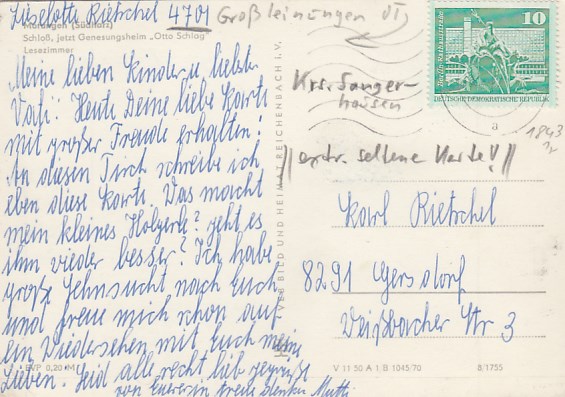 Lieselotte Rietschel 4701
Großleinungen
Morungen (Südharz)
Schloß, jetzt Genesungsheim „Otto Schlag"
Lesezimmer
Meine lieben Kinder u. liebster
Vati! Heute Deine liebe Karte
mit großer Freude erhalten!
An diesen Tisch schreibe ich
eben diese Karte. Das macht
mein kleines geht es
ihm wieder besser? Ich habe
große Sehnsucht nach Euch
und freue mich schon auf
ein Wiedersehen mit Euch meine
Lieben. Seid alle recht lieb gegrüßt
von Eurer Mutti
EVP 0,20 M
VEB BILD UND HEIMAT REICHENBACH I. V.
Berlin, Rathausstraße
10
DEUTSCHE DEMOKRATISCHE REPUBLIK
a
1843
Krs. Sanger-
hausen
//extr. seltene Karte!//
Karl Rietschel
8291 Gersdorf
Weißbacher Str. 3
V 11 50 A 1 B 1045/70
8/1755